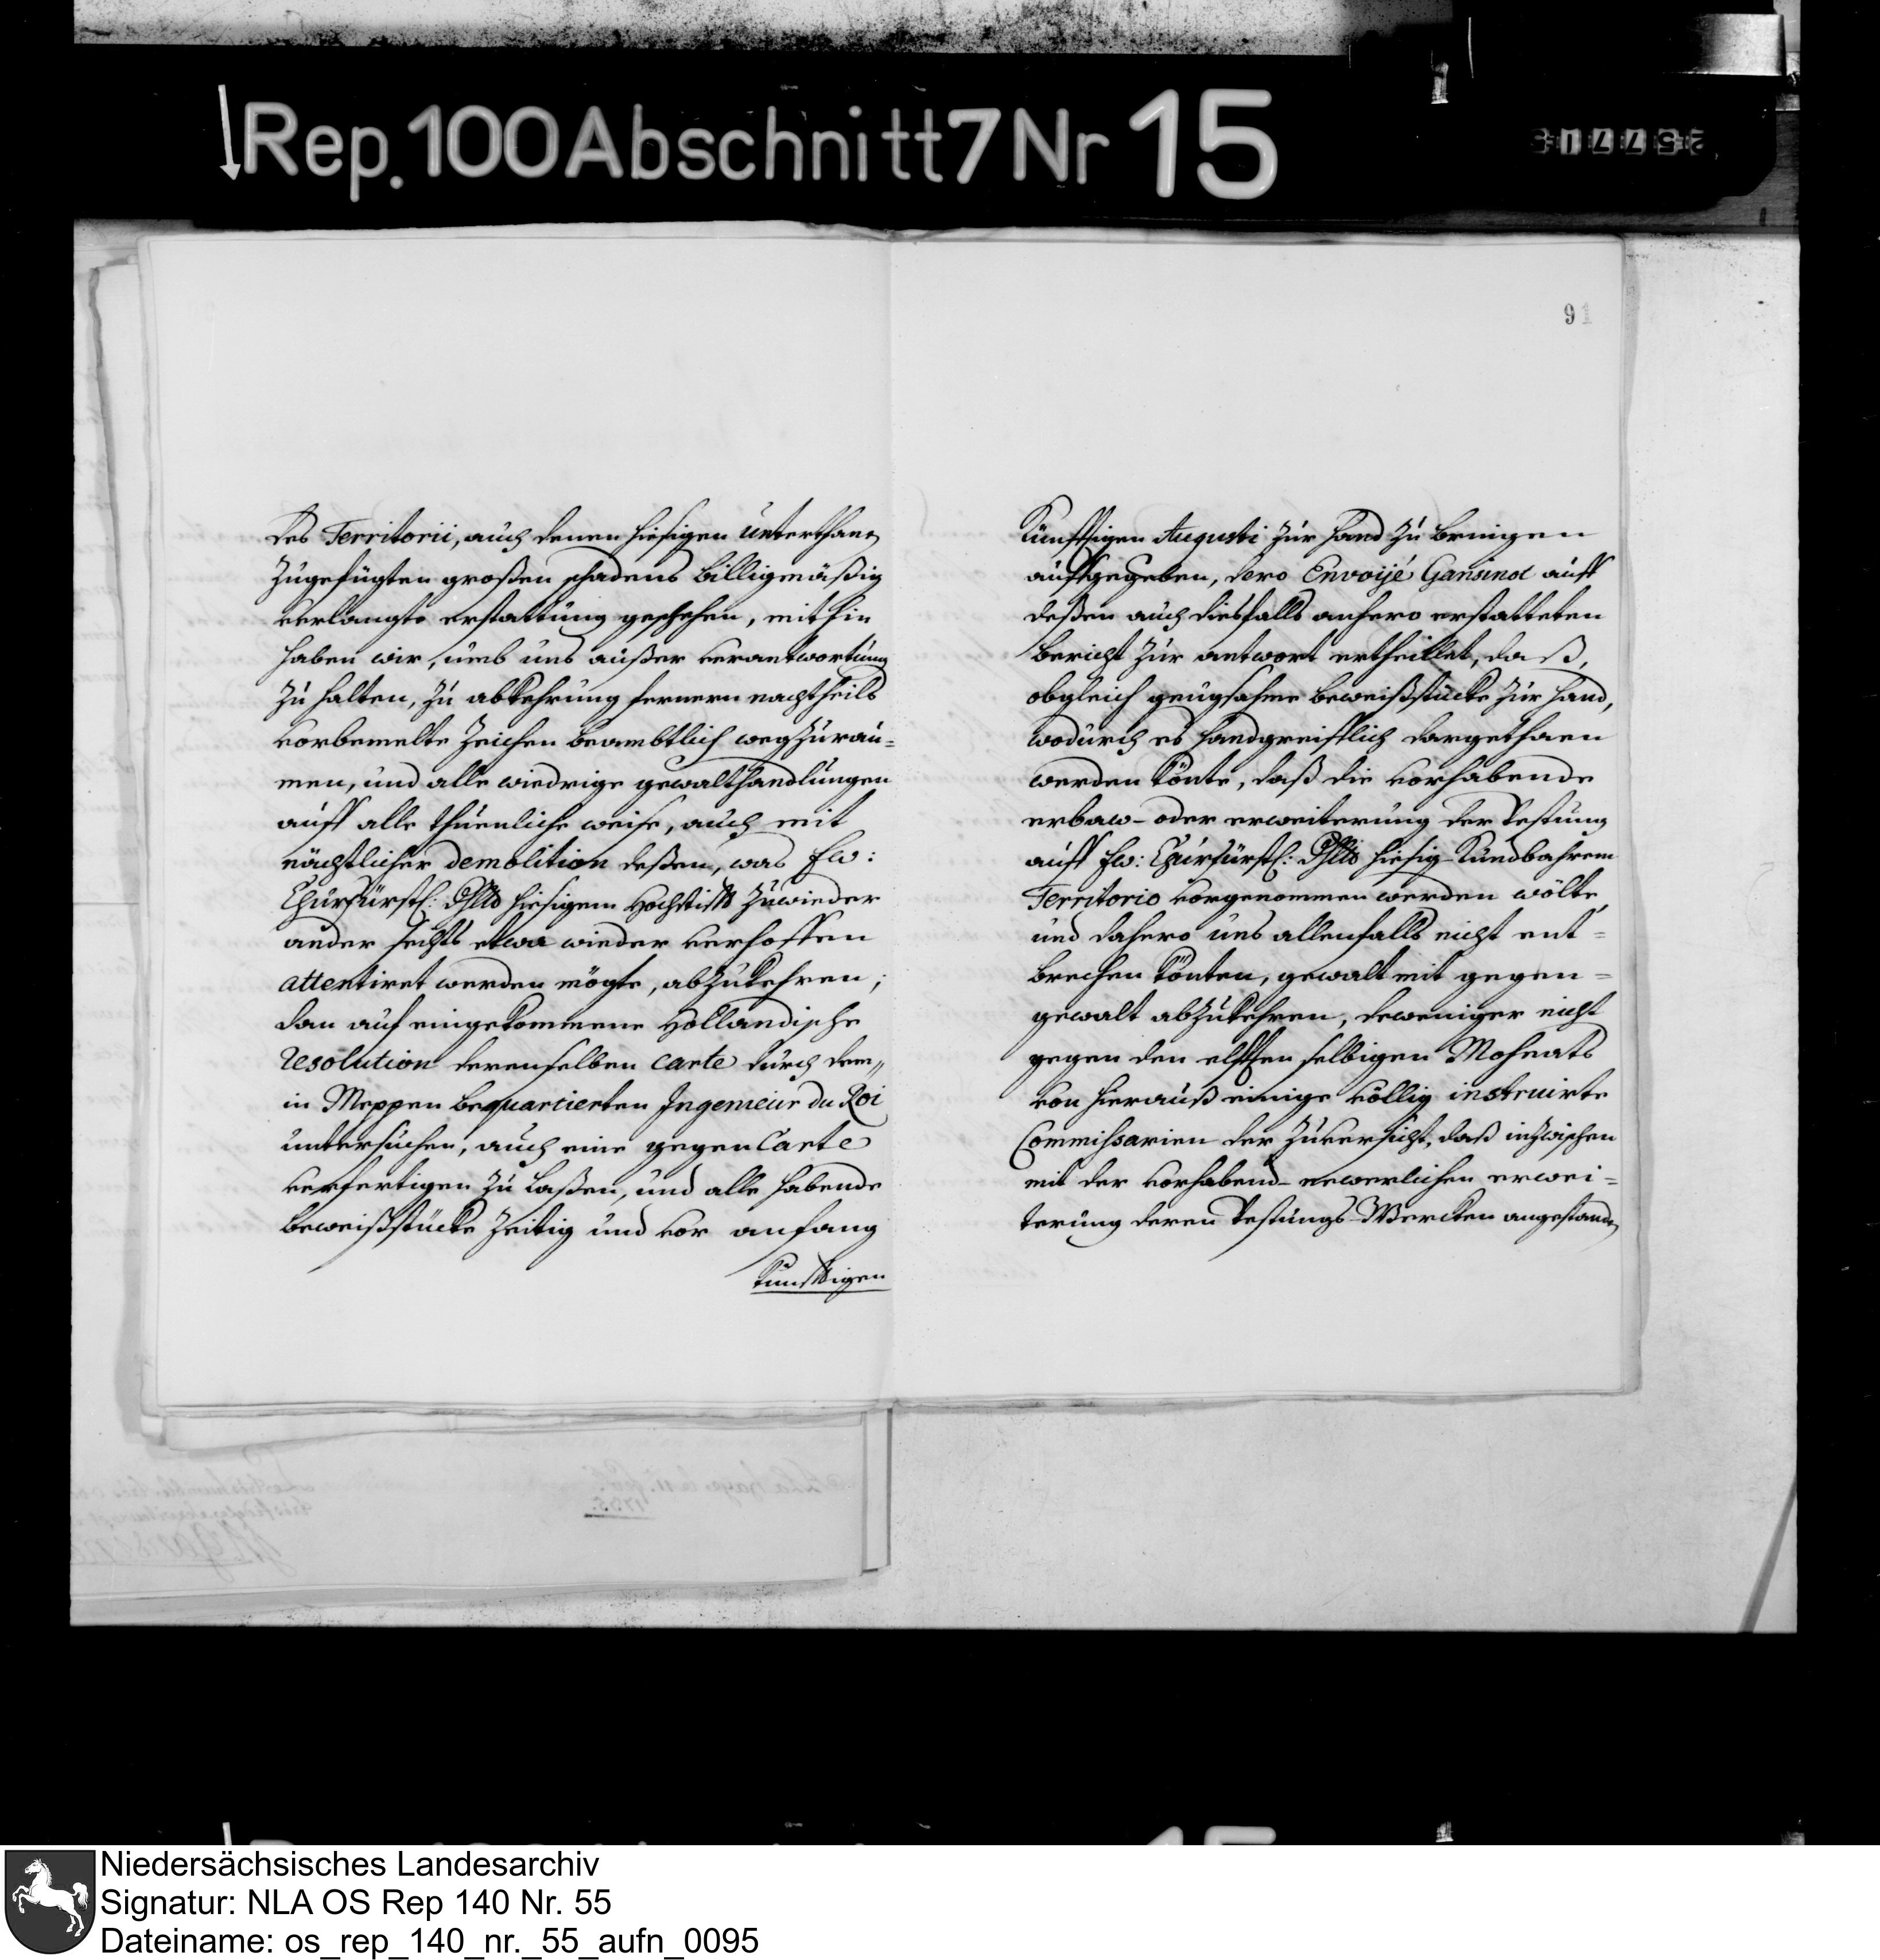 Rep. 100 Abschnitt 7 Nr 15
91
des Territorii, auch denen hiesigen Unterthanen
zugefügten großen schadens billigmäßig
verlangte erstattung geschehen, mithin
haben wir, umb uns außer verantwortung
zu halten, zu abkehrung fernern nachtheils
vorbemelte Zeichen beambtlich wegzuräu=
men, und alle wiedrige gewalthandlungen
auff alle thuenliche weise, auch mit
nächtlicher demolition deßen, was Ew:
Churfürstl: Dhltt hiesigem Hochstifft zuwieder
ander seiths etwa wieder verhoffen
attentiret werden mögte, abzukehren;
dan auf eingekommene Holländische
resolution derenselben carte durch dem
in Meppen bequartierten Ingenieur du Roi
untersuchen, auch eine gegen Carte
verfertigen zu laßen, und alle habende
beweißstücke zeitig und vor anfang
künfftigen
Künfftigen Augusti zur hand zu bringen
auffgegeben, dero Envoijé Gansinot auff
deßen auch diesfalls anhero erstatteten
bericht zur antwort ertheillet, daß,
obgleich gnugsahme beweißstücke zur hand,
wodurch es handgreifflich dargethaen
werden könte, daß die vorhabende
erbaw- oder erweiterung der Vestung
auff Ew: Churfürstl: Dhltt hiesig-Kundbahrem
Territorio vorgenommen werden wölte,
und dahero uns allenfalls nicht ent=
brechen könten, gewalt mit gegen=
gewalt abzukehren, deweniger nicht
gegen den elfften selbigen Mohnats
von hierauß einige völlig instruirte
Commissarien der zuversicht, daß inzwischen
mit der vorhabend-newerlichen erwei=
terung deren Vestungs-Wercken angestanden
Niedersächsisches Landesarchiv
Signatur: NLA OS Rep 140 Nr. 55
Dateiname: os_rep_140_nr._55_aufn_0095